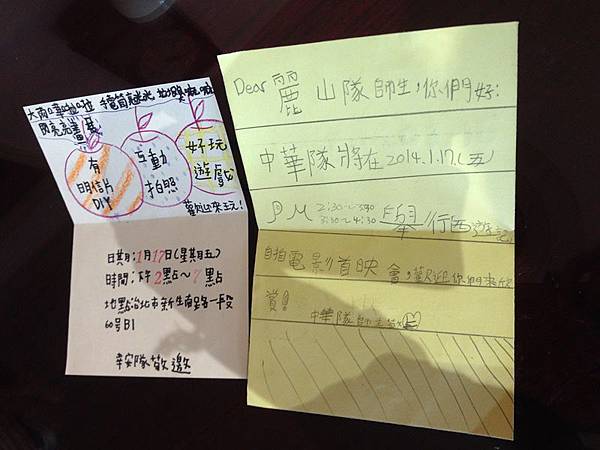 大雨嘩啦啦 手電筒來光 地球
閃亮亮畫展
有
明信片
DIY
互動
拍照
好玩
遊戲
歡迎來玩!
日期:1月17日(星期五)
時間:下午2點~7點
地點:台北市新生南路一段
60號B1
幸安隊敬邀
Dear 麗山隊師生,你們好:
中華隊將在2014.1.17.(五)
PM 2:30~3:30
3:30~4:30 舉行西遊記
自拍電影首映會,歡迎你們來欣
賞!!
中華隊師生敬上